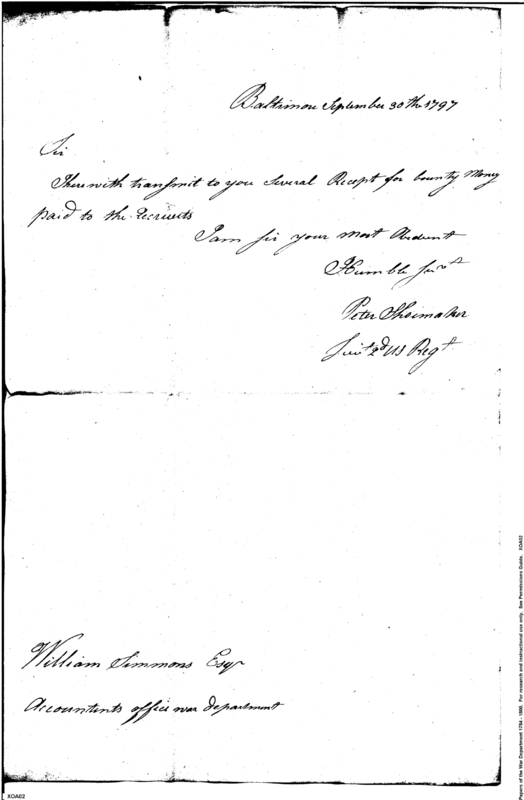 Baltimore September 30th 1797
Sir
I herewith transmit to you Several Recept for bounty Money
paid to the Recruits
I am sir your most Obedient
Humble Servt
Peter Shoemaker
Lieut 2d US Regt
William Simmons Esqr
Accountents office war department
XOA02
Papers of the War Department 1784 - 1800. For research and instructional use only. See Permissions Guide. XOA02